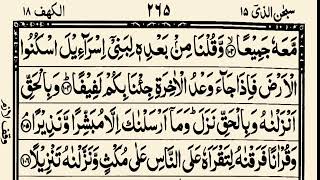 سبحٰن الذیٓ ۱۵
۲۶۵
الكهف ۱۸
مَّعَهٗ جَمِيْعًا ۙ﴿۱۰۳﴾ وَّقُلْنَا مِنْۢ بَعْدِهٖ لِبَنِىْٓ اِسْرَآءِيْلَ اسْكُنُوا
الْاَرْضَ فَاِذَا جَآءَ وَعْدُ الْاٰخِرَةِ جِئْنَا بِكُمْ لَفِيْفًا ؕ﴿۱۰۴﴾ وَبِالْحَقِّ
اَنْزَلْنٰهُ وَبِالْحَقِّ نَزَلَ ؕ وَمَاۤ اَرْسَلْنٰكَ اِلَّا مُبَشِّرًا وَّنَذِيْرًا ۘ﴿۱۰۵﴾
وَقُرْاٰنًا فَرَقْنٰهُ لِتَقْرَاَهٗ عَلَى النَّاسِ عَلٰى مُكْثٍ وَّنَزَّلْنٰهُ تَنْزِيْلًا ﴿۱۰۶﴾
وقف لازم